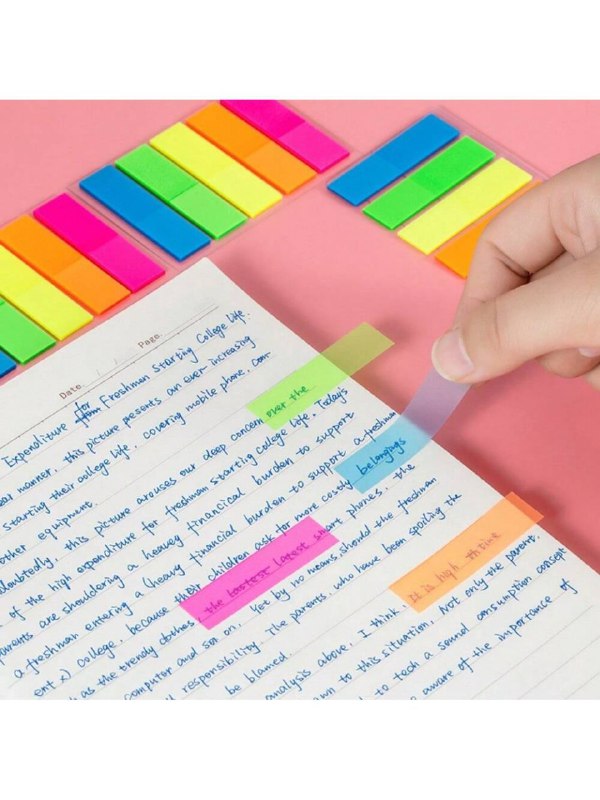 Date / / Page
Expenditure for Freshman Starting College Life.
manner, this picture presents an ever increasing
starting their college life, covering mobile phone, com-
other equipment.
doubtedly, this picture arouses our deep concern over the
of the high expenditure for freshman starting college life. Today's
parents are shouldering a heavy financial burden to support
a freshman entering a (heavy financial burden to support a freshman
ent x) college, because their children ask for more costly belongings
as the trendy clothes, the lastest latest smart phones, the
computer and so on. Yet by no means should the freshman
responsibility. The parents, who have been spoiling the
be blamed.
analysis above, I think, It is high thtime
to this situation. Not only the parent,
to tech a sound consumption concept
aware of the importance of